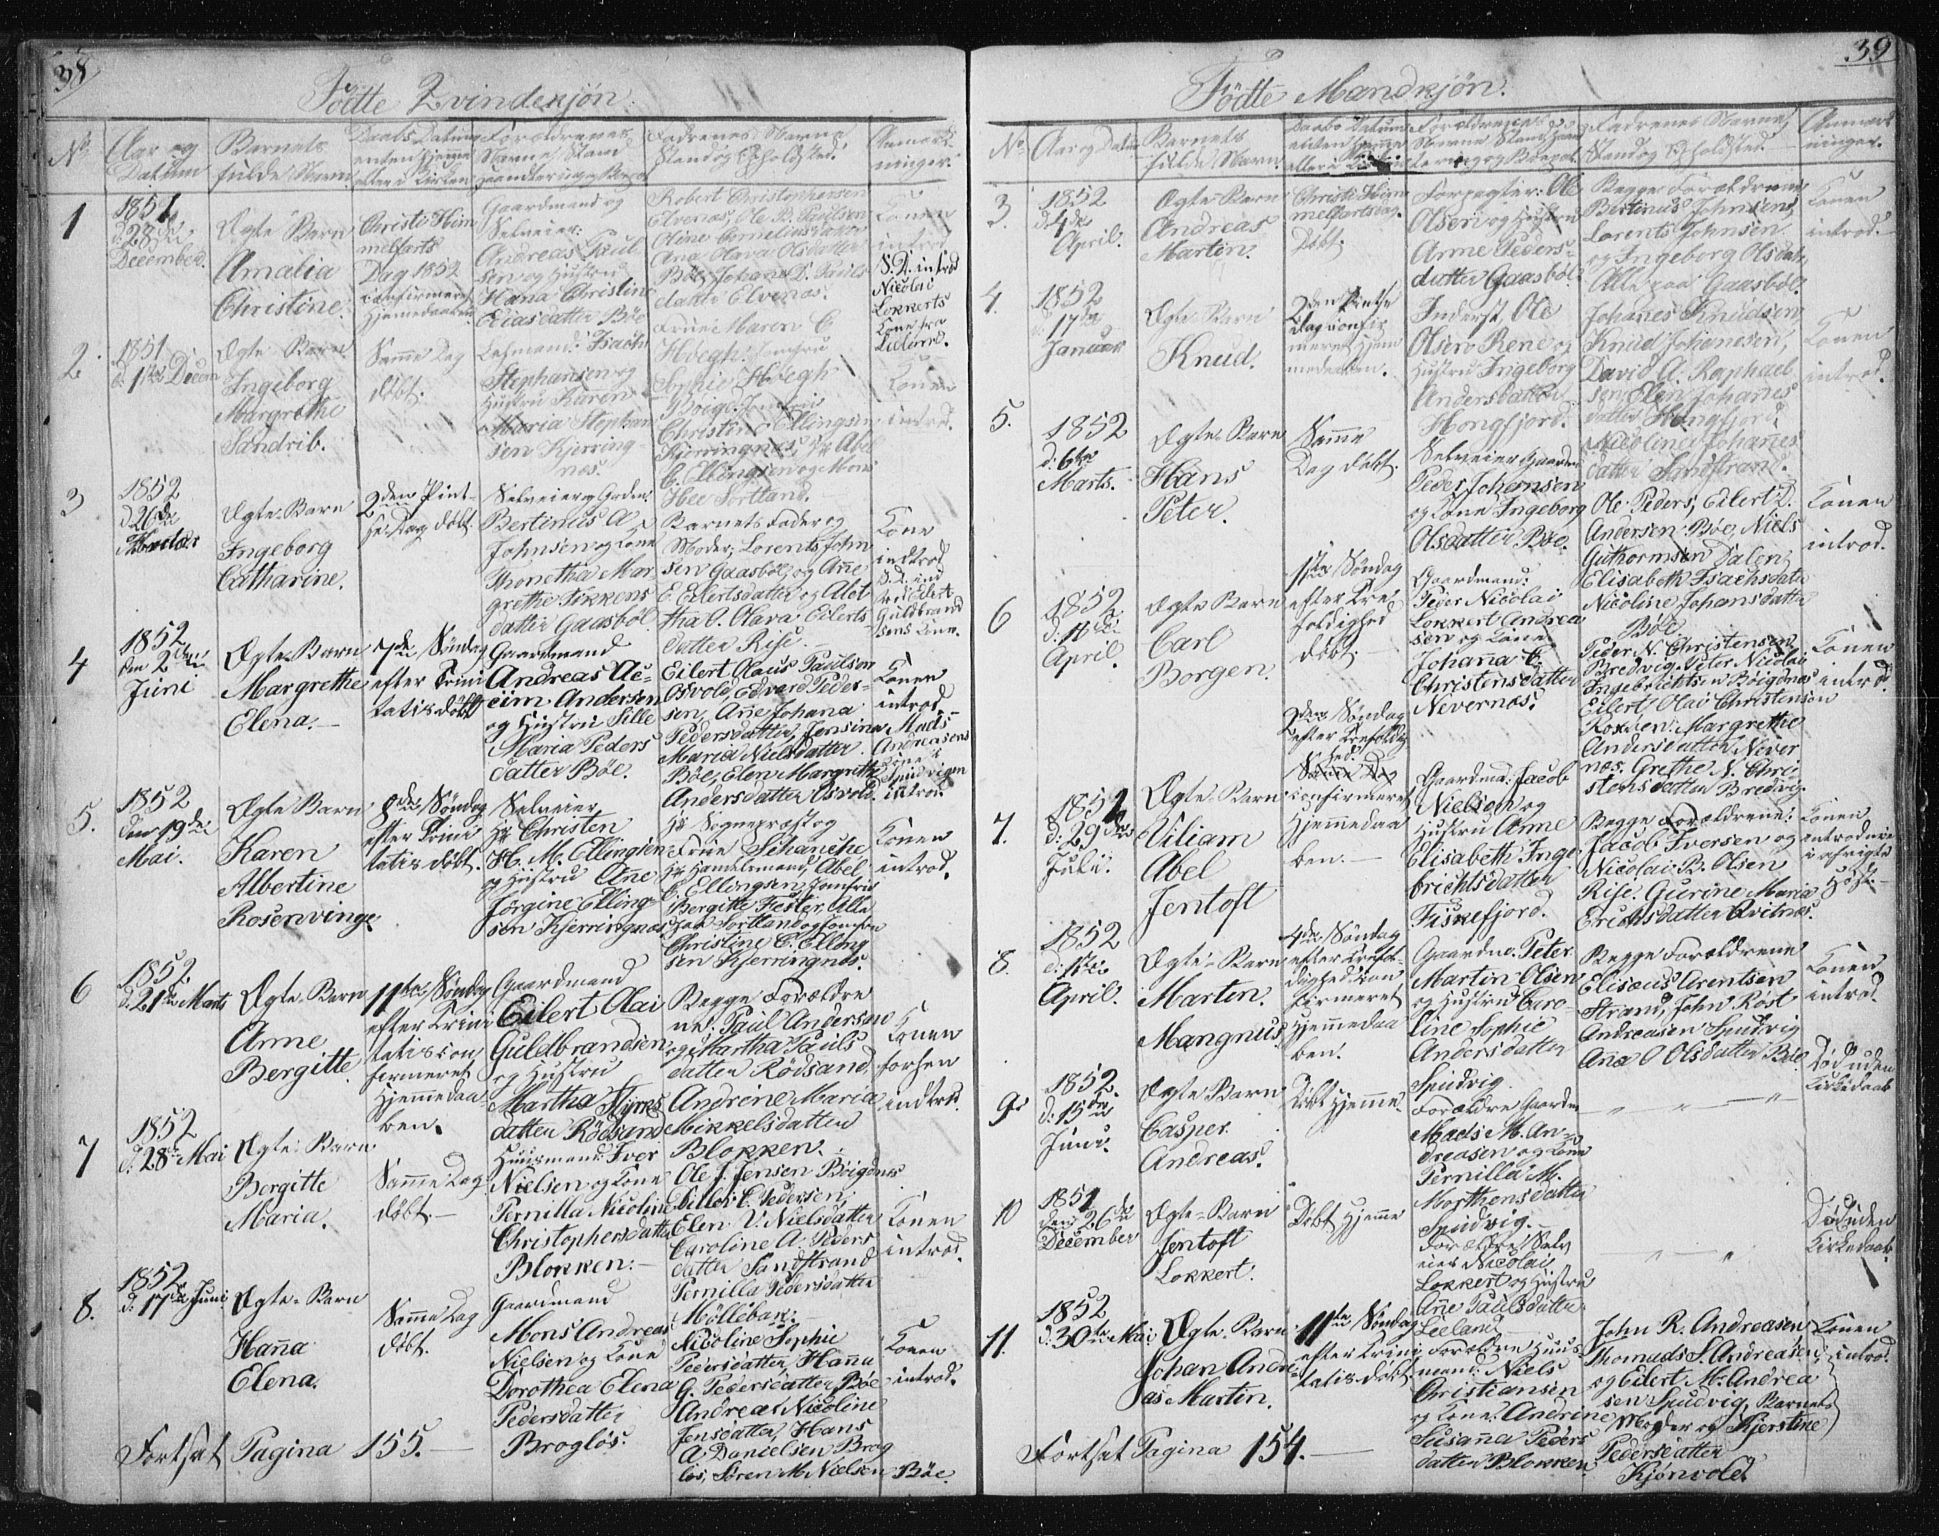 38
Fødte Qvindekjøn.
No
Aar og Datum
Barnets fulde Navn
Daabs Datum enten hjemme eller i Kirken
Forældrenes Navne, Stand Haandtering og Bopæl
Fadrenes Navne Stand og Opholdsted.
Anmærkninger.
1
1851
d. 28de
December.
Ægte Barn
Amalia
Christine.
Christi Him
melfarts
Dag 1852
confirmeret
Hjemedaaben.
Gaardmand og
Selveier:
Andreas Paul
sen og Hustru
Hana Christine
Eliasdatter Böe
Robert Christophersen
Elvenæs, Ole P. Paulsen
Oline Corneliusdatter
Ana Olava Olsdatter
Böe, Johana P. Pauls
datter Elvenæs.
Konen
introd.
S. D. introd
Nicolai
Lokkerts
Kone fra
Leeland.
2.
1851
d. 1ste Decem
Ægte Barn
Ingeborg
Margrethe
Sandrib.
Samme Dag
döbt.
Lehmand: Isach
Stephansen og
Hustru Karen
Maria Stephan
sen Kjerring
næs.
Frue Maren C
Höegh. Jomfru
Sophie Höegh
Böigd. Jomfru
Christine Ellingsen
Kjerringnæs, Hr Abel
C. Ellingsen og Mons
Hee Sortland.
Konen
introd.
3
1852
d. 26de
Ægte Barn
Ingeborg
Catharine.
2den Pint-
se Dag döbt.
Selveier Gaardm:
Bertinus A
Johnsen og Kone
Thonetha Mar
grethe Sikkens
datter Gaasböl.
Barnets Fader og
Moder, Lorents John
sen Gaasböl, og Ane
E. Eilertsdatter og Alet
tha O. Olava Eilerts-
datter Rise.
Kone
indtrod
S. D. ind
trod Eilert
Guldbrand
sens Kone.
4
1852
den 2den
Juni
Ægte Barn
Margrethe
Elena.
7de Søndag
efter Trini
tatis döbt
Gaardmand
Andreas Ac-
eim Andersen
og Hustru Sille
Maria Peders
datter Böe.
Eilert Olaus Paulsen
Osvold, Edvard Peder-
sen, Ane Johana
Pedersdatter, Jensina
Maria Nielsdatter
Böe, Elen Margrethe
Andersdatter Osvold.
Konen
introd
Mads
Andreasens
Kone
Spidvigen
introd.
5.
1852
den 19de
Mai.
Ægte Barn
Karen
Albertine
Rosenvinge
8de Søndag
efter Trini
tatis döbt.
Selveier,
Hr Christen
H. M. Ellingsen
og Hustru Ane
Jörgine Elling-
sen Kjerringnæs
Hr Sognepræst og
Frue Schanche
Hr Handelsmand, Abel
C. Ellingsen, Jomfru
Bergitte Fiester, Alle
paa Sortland og Jomfru
Christine C. Elling
sen Kjerringnæs.
Konen
introd.
6
1852
d. 21de Marts
Ægte Barn
Anne
Bergitte
11te Søndag
efter Trini
tatis con
firmeret
Hjemmedaa
ben.
Gaardmand
Eilert Olai
Guldbrandsen
og Hustru
Martha Styrks
datter Rödsand
Begge Forældre
ne: Paul Andersen
og Martha Pauls
datter Rödsand
Andrine Maria
Mikkelsdatter
Blokken.
Konen
forhen
indtrod.
7
1852
d. 28de Mai
Ægte Barn
Bergitte
Maria.
Samme Dag
döbt.
Huusmand: Iver
Nielsen og Kone
Pernilla Nicoline
Christophersdatter
Blokken.
Ole J. Jensen Böigdnæs
Sillei C. Pedersen,
Elen V. Nielsdatter
Caroline A. Peders
datter Sandstrand
Pernilla Pedersdatter
Möllebak.
Konen
introd.
8.
1852
d. 17de Juni
Ægte Barn
Hana
Elena.
Samme Dag
döbt.
Gaardmand
Mons Andreas
Nielsen og Kone
Dorothea Elena
Pedersdatter
Broglös.
Nicoline Sophie
Pedersdatter, Hanna
G. Pedersdatter Böe
Andrea Nicoline
Jensdatter, Hans
A. Danielsen Brog
lös, Sören M. Nielsen Böe.
Konen
introd.
Fortsat Pagina 155.
39
Födte Mandkjön.
No
Aar og Datum
Barnets fulde Navn
Daabs Datum enten hjemme eller i Kirken
Forældrenes Navne Stand Handtering og Bopæl
Fadrenes Navne, Stand og Opholdsted.
Anmærkninger.
3.
1852
d. 4de
April.
Ægte Barn
Andreas
Martin.
Christi Him
melfartsdag.
Döbt.
Forpagter: Ole
Olsen og Hustru
Anne Peders-
datter Gaasböl.
Begge Forældrene
Bertinus Johnsen,
Lorents Johnsen
og Ingeborg Olsdatr
Alle paa Gaasböl.
Konen
introd.
4.
1852
d. 17de
Januar
Ægte Barn
Knud.
2den Pintse
dag confir
meret Hjem
medaaben.
Inderst, Ole
Olsen Rene og
Hustru Ingeborg
Andersdatter
Hongfjord.
Johanes Knudsen
Knud Johanesen,
David A. Raphael
sen, Elen Johanes
datter Hongfjord
Nicoline Johanes
datter Sandstrand.
Konen
introd.
5.
1852
d: 6te
Marts.
Ægte Barn
Hans
Peter.
Samme
Dag döbt.
Selveier Gaardm
Peder Johansen
og Kone Ingeborg
Olsdatter Böe.
Ole Peders, Eilert D.
Andersen Böe, Niels
Guthormsen Dalen,
Elisabeth Isachsdatr
Nicoline Johansdatter
Böe.
Konen
introd.
6
1852
April.
Ægte Barn
Carl
Borgen.
1ste Søndag
efter Tre
foldighed
döbt.
Gaardmand:
Peder Nicolai
Lokkert Andrea
sen og Kone
Johana C.
Christensdatter
Nevernæs.
Peder N. Christensen
Bredvig, Peter Nicolai
Ingebrichtsen Böigdnæs
Eilert Olai Christensen
Margrethe
Andersdatter Never
næs, Grethe N. Chri
stensdatter Bredvig.
Konen
introd.
7.
1852
d: 29de
Juli.
Ægte Barn
Viliam
Abel
Jentoft
2den Søndag
efter Trefoldig
hed.
confirmeret
Hjemmedaa
ben.
Gaardmd: Jacob
Nielsen og
Hustru Anne
Elisabeth Inge-
brichtsdatter
Fiskefjord.
Begge Forældrene:
Jacob Iversen og
Nicolai B. Olsen
Rise. Gurine Maria
Erichsdatter Qvitnæs.
Konen
introducere
i afvigte
Höst
8.
1852
d. 1ste
April.
Ægte Barn
Marten
Mangnus.
4de Søndag
efter Trefol-
dighed con
firmeret
Hjemmedaa
ben.
Gaardmd. Peter
Martin Olsen
og Hustru Caro
line Sophie
Andersdatter
Spidvig.
Begge Forældrene
Elisæus Arentsen
Strand, John Rost
Andreasen Spidvig
Ana O Olsdatter Böe.
Konen
introd.
9.
1852
d. 15de
Juni.
Ægte Barn
Casper
Andreas.
Döbt Hjemme.
Forældre Gaardm
Mads M. An-
dreasen og Kone
Pernilla M.
Morthensdatter
Spidvig.
Död uden
Kirkedaab
10
1851
den 26de
December
Ægte Barn
Jentoft
Lokkert.
Döbt Hjemme
Forældre, Selv
eier Nicolai
Lokkert og Hustru
Ane Paulsdatter
Leeland
Död uden
Kirkedaab
11.
1852
d. 30te Mai
Ægte Barn
Johan Andre
as Martin.
11te Søndag
efter Trini
tatis döbt
Forældre Huus
mand: Niels
Christiansen
og Kone: Andrine
Susana Peders
datter Blokken.
John R. Andreasen,
Thomads S. Andreasen
og Eilert M. Andrea
sen Spidvig, Barnets
Moder og Kjerstine
Pedersdatter
Kjörvold.
Konen
introd.
Fortsat Pagina 154.